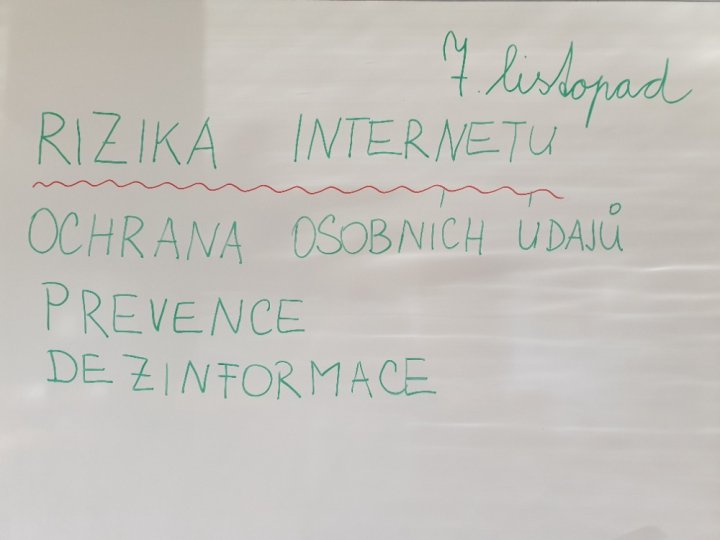 7. listopad
RIZIKA INTERNETU
OCHRANA OSOBNÍCH ÚDAJŮ
PREVENCE
DEZINFORMACE